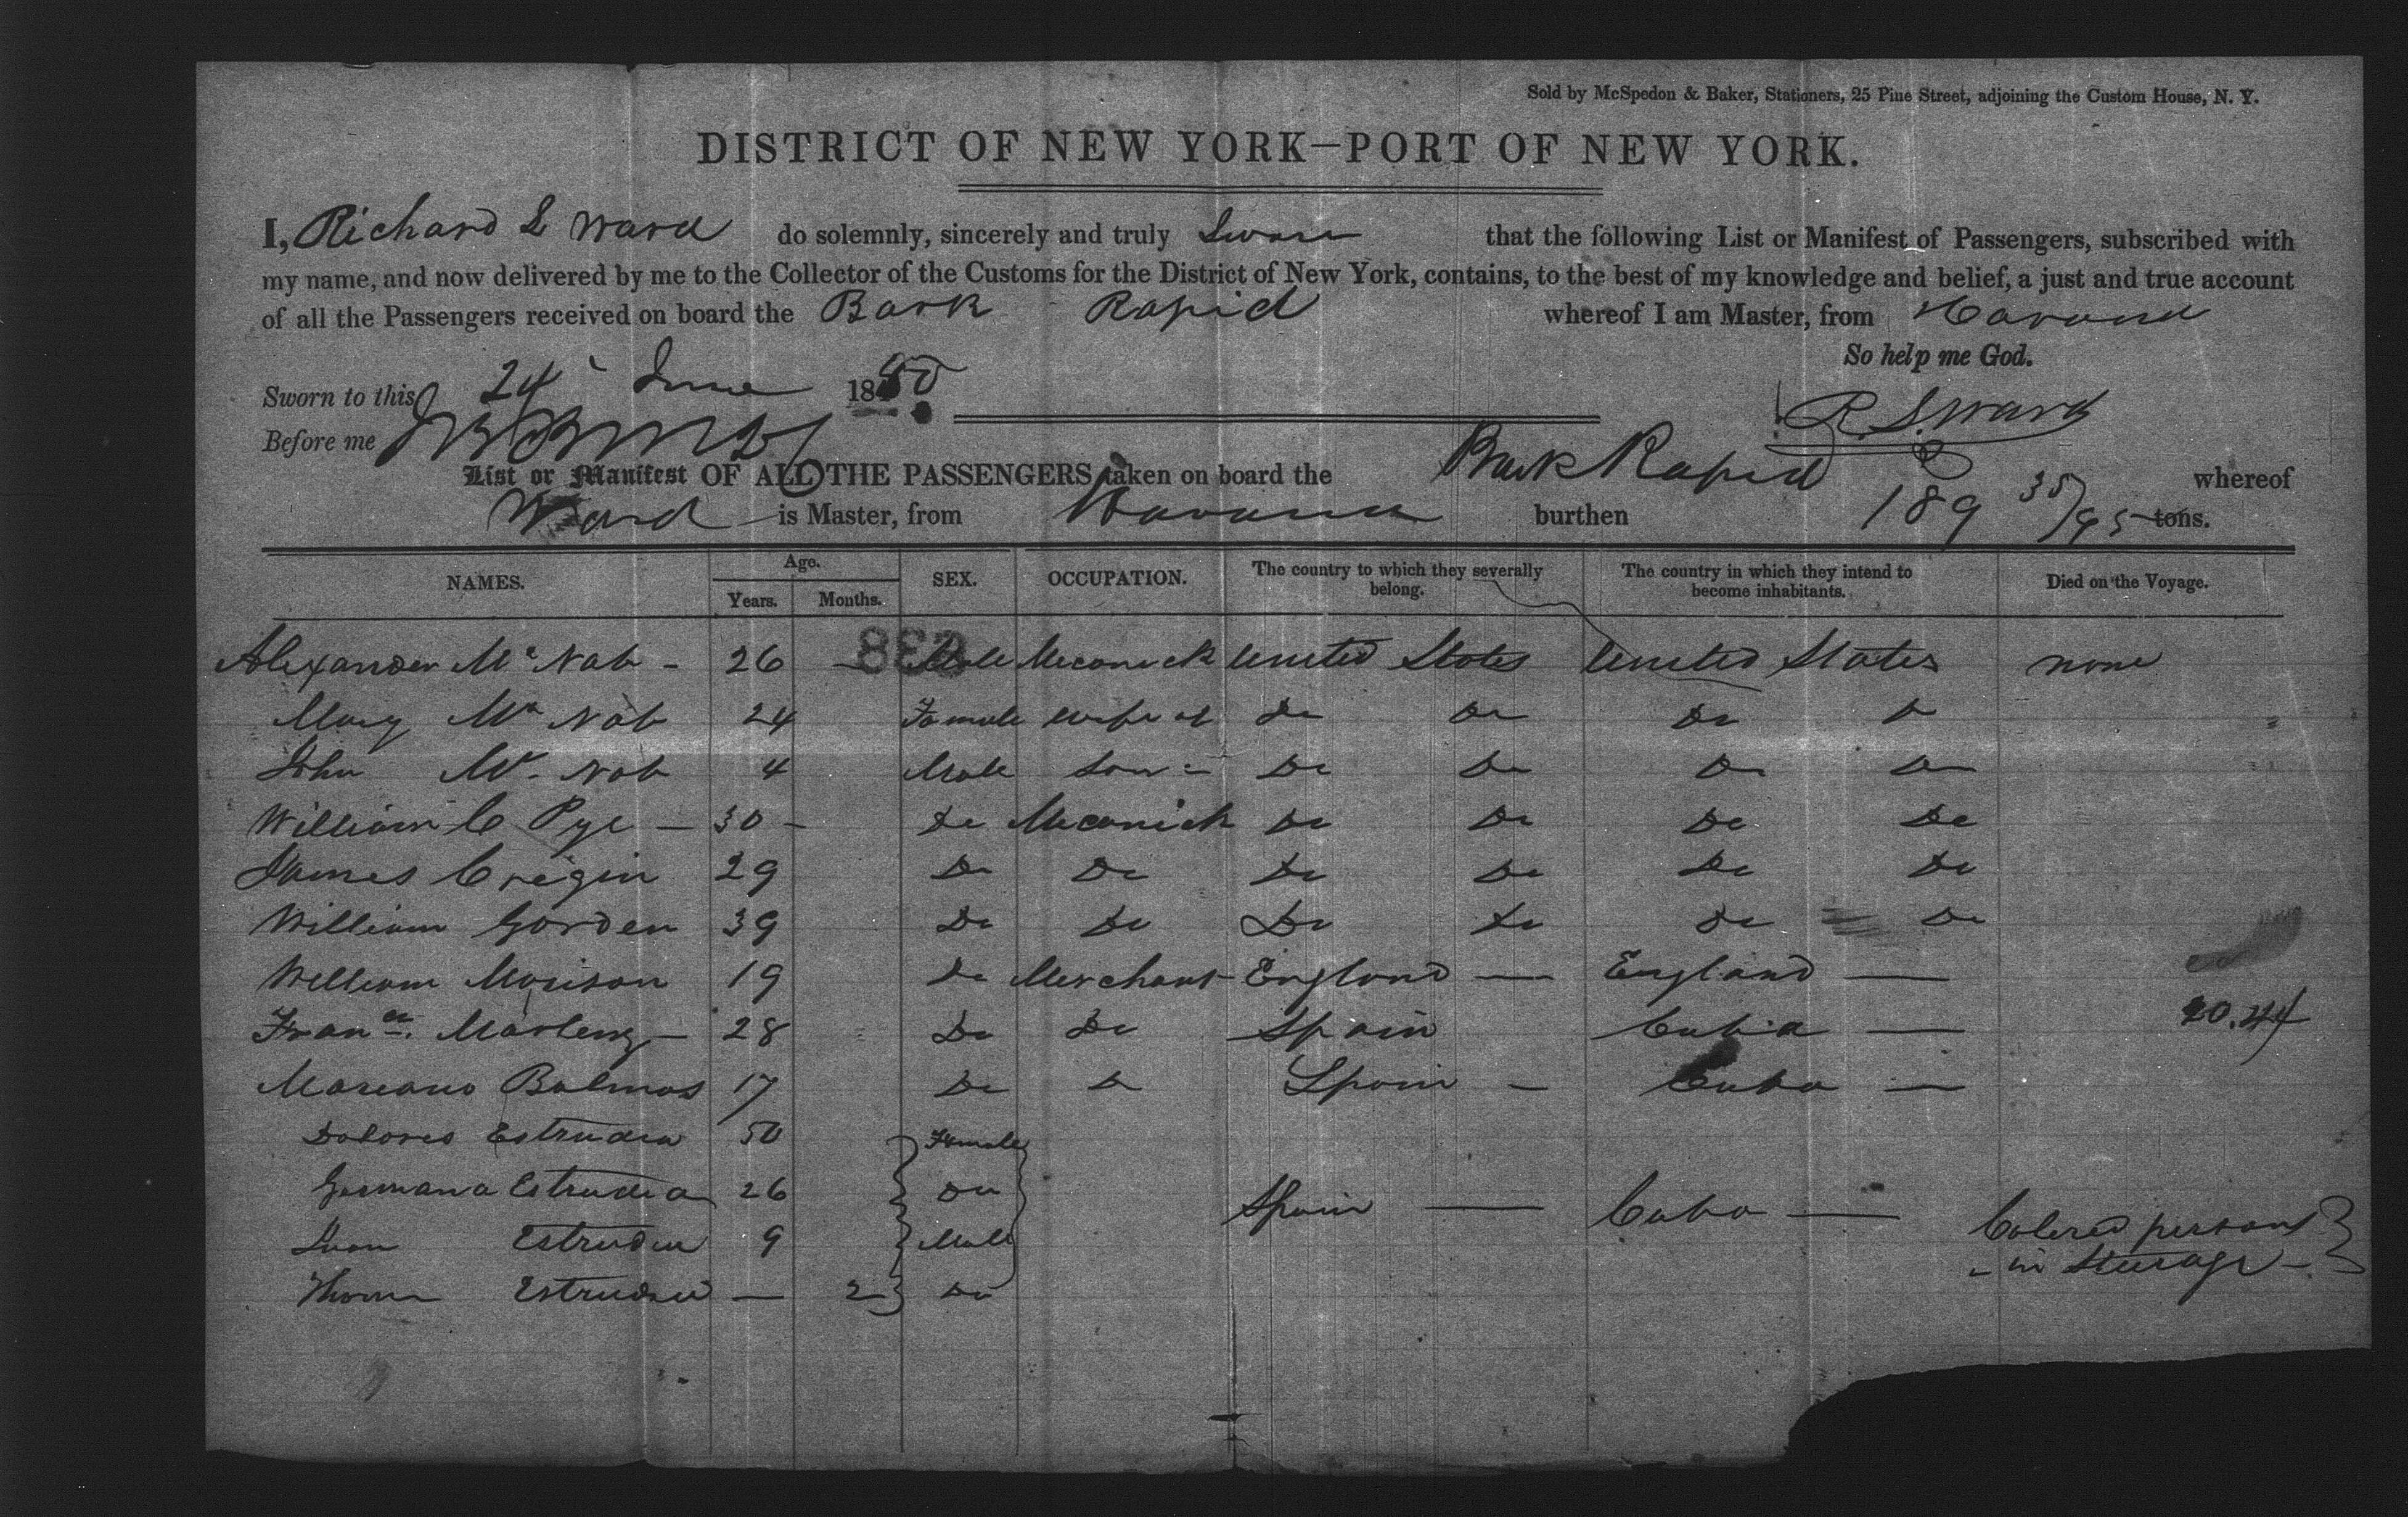 Sold by McSpedon & Baker, Stationers, 25 Pine Street, adjoining the Custom House, N. Y.
DISTRICT OF NEW YORK—PORT OF NEW YORK.
I, Richard S Ward do solemnly, sincerely and truly Swear that the following List or Manifest of Passengers, subscribed with
my name, and now delivered by me to the Collector of the Customs for the District of New York, contains, to the best of my knowledge and belief, a just and true account
of all the Passengers received on board the Bark Rapid whereof I am Master, from Havana
So help me God.
Sworn to this 24 June 1850
R. S. Ward
Before me
List or Manifest OF ALL THE PASSENGERS taken on board the Bark Rapid whereof
Ward is Master, from Havana burthen 189 35/95 tons.
NAMES. Age. Years. Months. SEX. OCCUPATION. The country to which they severally belong. The country in which they intend to become inhabitants. Died on the Voyage.
838
Alexander Mc Nab - 26 — Male Mecanick United States United States none
Mary Mc Nab 24 Female wife of Do Do Do Do
John Mc Nab 4 Male Son - Do Do Do Do
William C Pye — 30 - Do Mecanick Do Do Do Do
James Cregin 29 Do Do Do Do Do Do
William Gorden 39 Do Do Do Do Do Do
William Morison 19 Do Merchant England — England —
Franco. 28 Do Do Spain Cuba — 20.44
Mareano Balmas 17 Do Do Spain — Cuba —
Dolores Estrudea 50 Female
Germana Estrudea 26 Do Spain — Cuba — Colered persons
Juan Estrudea 9 Male - in Sturage -
Estrudea — 2 Do